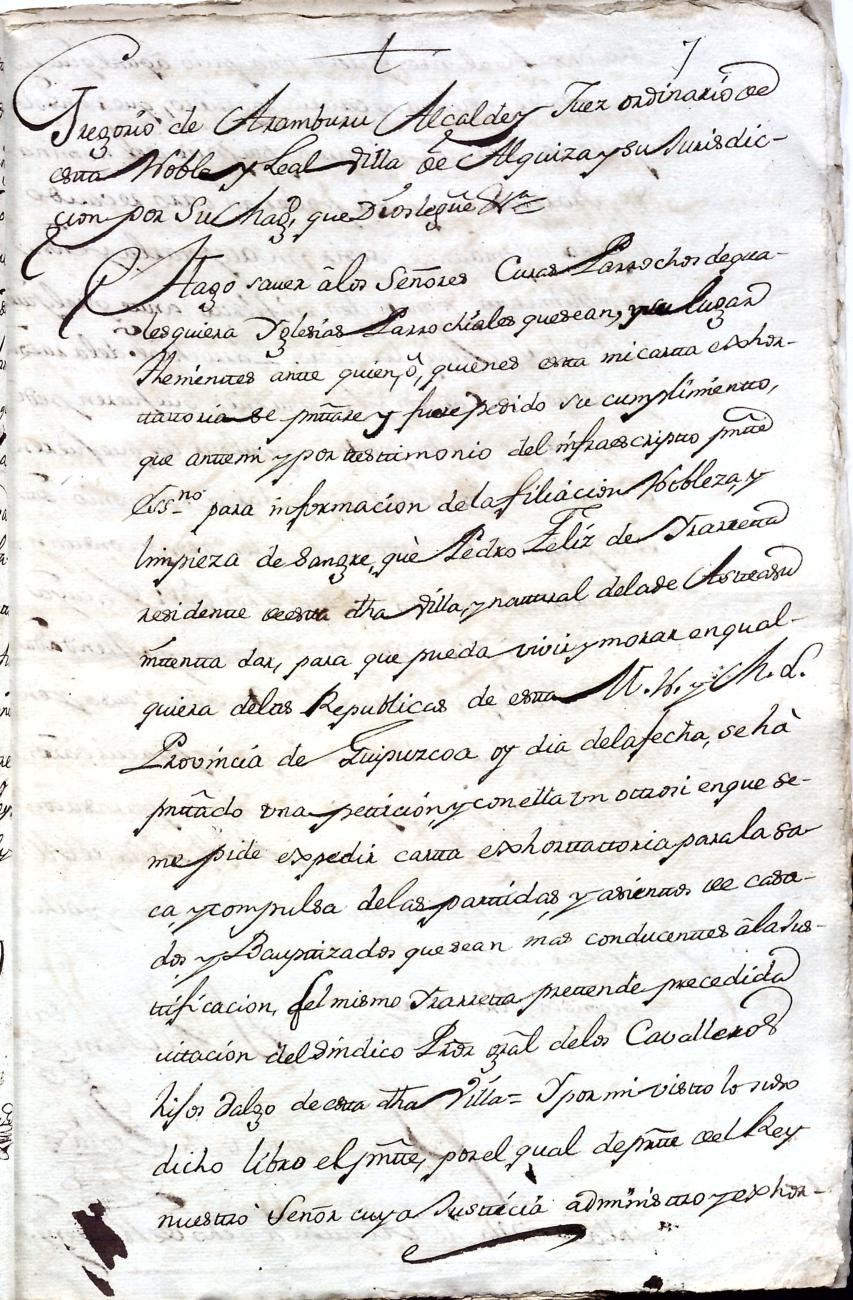 7
Gregorio de Aramburu Alcalde y Juez ordinario de
esta Noble y Leal Villa de Alquiza y su Jurisdic-
cion por Su Mag.d, que Dios legûe &.a
Hago saver â los Señores Curas Parrochos de qua-
lesquiera Yglesias Parrochiales que sean, y su lugar
thenientes ante quien, ô, quienes esta mi carta exhor-
ttatoria se pñttare y fuere pedido su cumplimiento,
que ante mi y por testtimonio del infraescripto pñtte
Ess.no para informacion de la filiacion Nobleza, y
limpieza de sangre, què Pedro Feliz de Yrarreta
residente de esta dha Villa, y natural de la de Asteasu
inttenta dar, para que pueda vivir y morar en qual-
quiera de las Republicas de esta M. N. y M. L.
Provincia de Guipuzcoa oy dia de la fecha, se hà
pñttado una petticion, y con ella un ottrosi en que se
me pide expedir cartta exhorttattoria para la sa-
ca y compulsa de las parttidas y asientos de casa-
dos y Bauptizados que sean mas conducenttes â la Jus-
ttificacion, q el mismo Yrarretta prettende precedida
cittacion del sindico Pror gral de los Cavalleros
hijos dalgo de esta dha Villa= Y por mi vistto lo suso
dicho libro el pñtte, por el qual de pñtte del Rey
nuestro Señor cuya Justticia administtro y exhor-